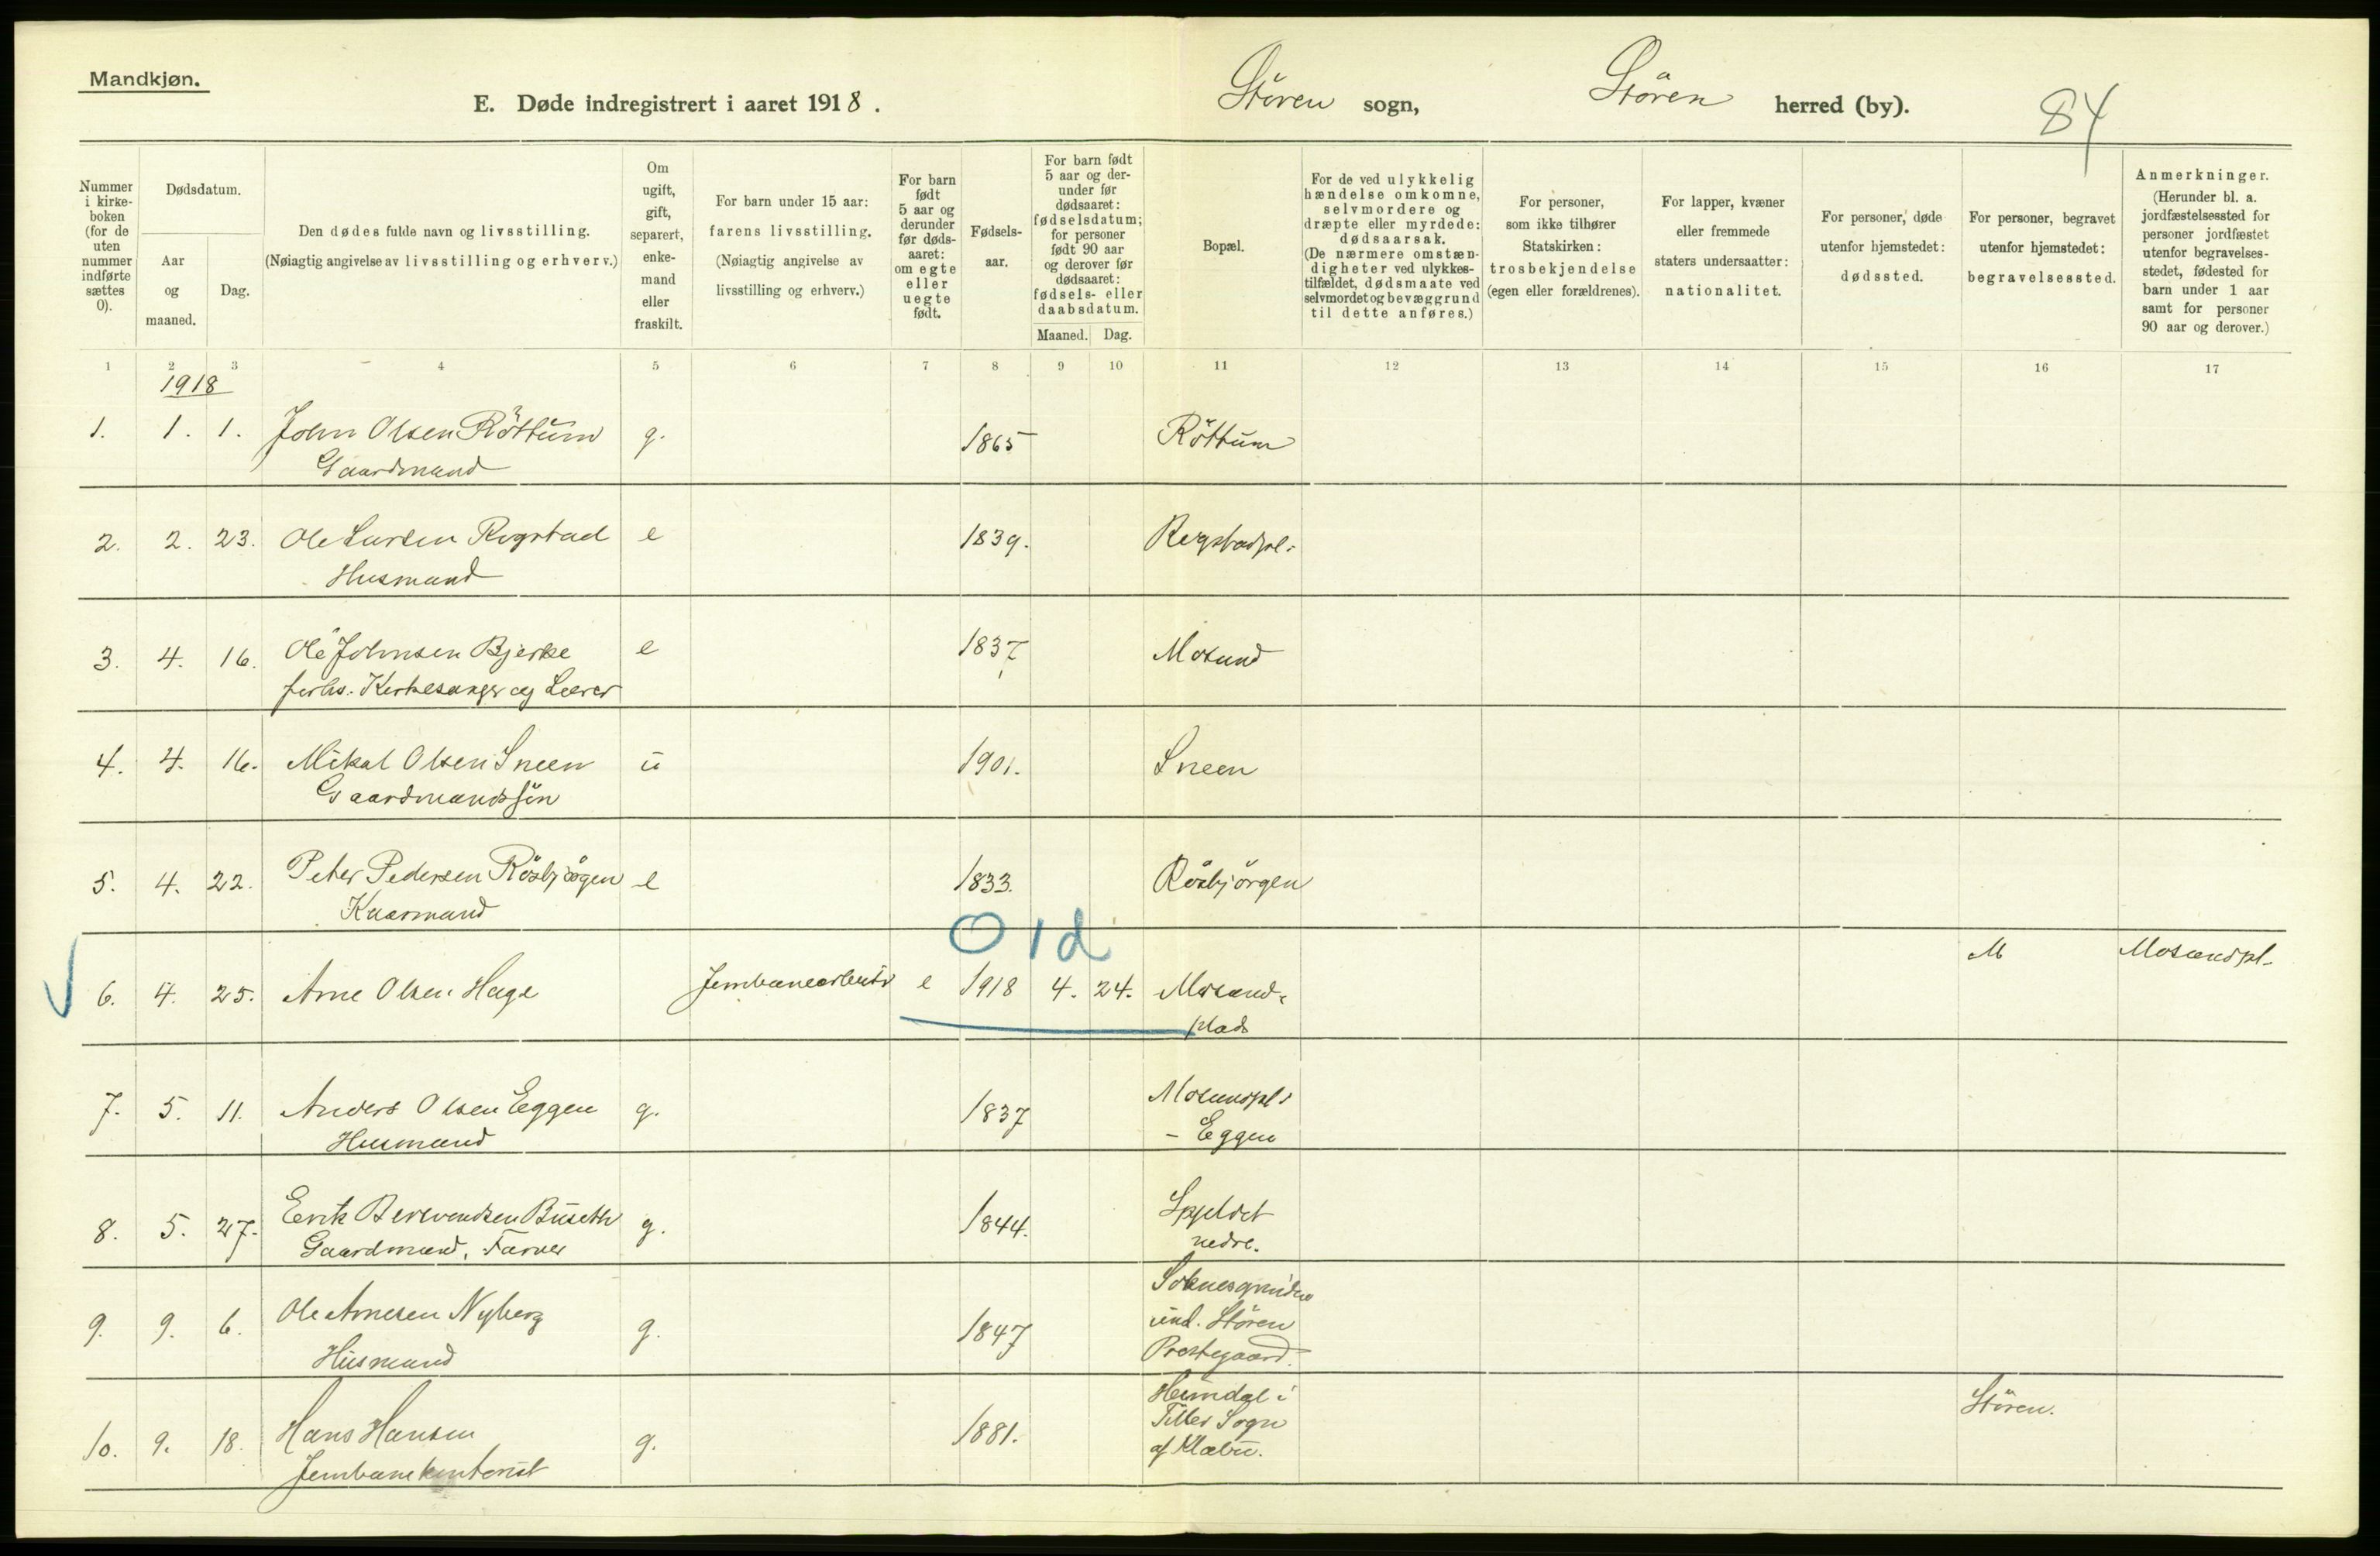 Mandkjøn.
E. Døde indregistrert i aaret 1918.
Støren sogn, Støren herred (by).
84
Nummer i kirkeboken (for de uten nummer indførte sættes 0).
Dødsdatum.
Aar og maaned.
Dag.
Den dødes fulde navn og livsstilling.
(Nøiagtig angivelse av livsstilling og erhverv.)
Om ugift, gift, separert, enkemand eller fraskilt.
For barn under 15 aar: farens livsstilling.
(Nøiagtig angivelse av livsstilling og erhverv.)
For barn født 5 aar og derunder før dødsaaret: om egte eller uegte født.
Fødselsaar.
For barn født 5 aar og derunder før dødsaaret: fødselsdatum; for personer født 90 aar og derover før dødsaaret: fødsels- eller daabsdatum.
Maaned. Dag.
Bopæl.
For de ved ulykkelig hændelse omkomne, selvmordere og dræpte eller myrdede: dødsaarsak.
(De nærmere omstændigheter ved ulykkestilfældet, dødsmaate ved selvmordet og bevæggrund til dette anføres.)
For personer, som ikke tilhører Statskirken: trosbekjendelse (egen eller forældrenes).
For lapper, kvæner eller fremmede staters undersaatter: nationalitet.
For personer, døde utenfor hjemstedet: dødssted.
For personer, begravet utenfor hjemstedet: begravelsessted.
Anmerkninger.
(Herunder bl. a. jordfæstelsessted for personer jordfæstet utenfor begravelsesstedet, fødested for barn under 1 aar samt for personer 90 aar og derover.)
1 2 3 4 5 6 7 8 9 10 11 12 13 14 15 16 17
1918
1. 1. 1. John Olsen Röttum g. 1865 Röttum
Gaardmand
2. 2. 23. Ole Larsen Rogstad e 1839. Rogstadpl.
Husmand
3. 4. 16. Ole Johnsen Bjerke e 1837 Mosand
forhv. Kirkesanger og Lærer
4. 4. 16. Mikal Olsen Sneen u 1901. Sneen
Gaardmandssön
5. 4. 22. Peter Pedersen Rösbjörgen e 1833. Rösbjörgen
Kaarmand
0 1d
6. 4. 25. Arne Olsen Hage Jernbanearbeider e 1918 4. 24. Mosand- M Mosandpl.
plads
7. 5. 11. Anders Olsen Eggen g. 1837 Mosandpl.
Husmand - Eggen
8. 5. 27. Erik Buseth g. 1844. Spjeldet
Gaardmand, Farver nedre.
9. 9. 6. Ole Arnesen Nyberg g. 1847 und. Støren
Husmand Prestegaard.
10. 9. 18. Hans Hansen g. 1881. Heimdal i Tiller Sogn af Klæbu. Støren.